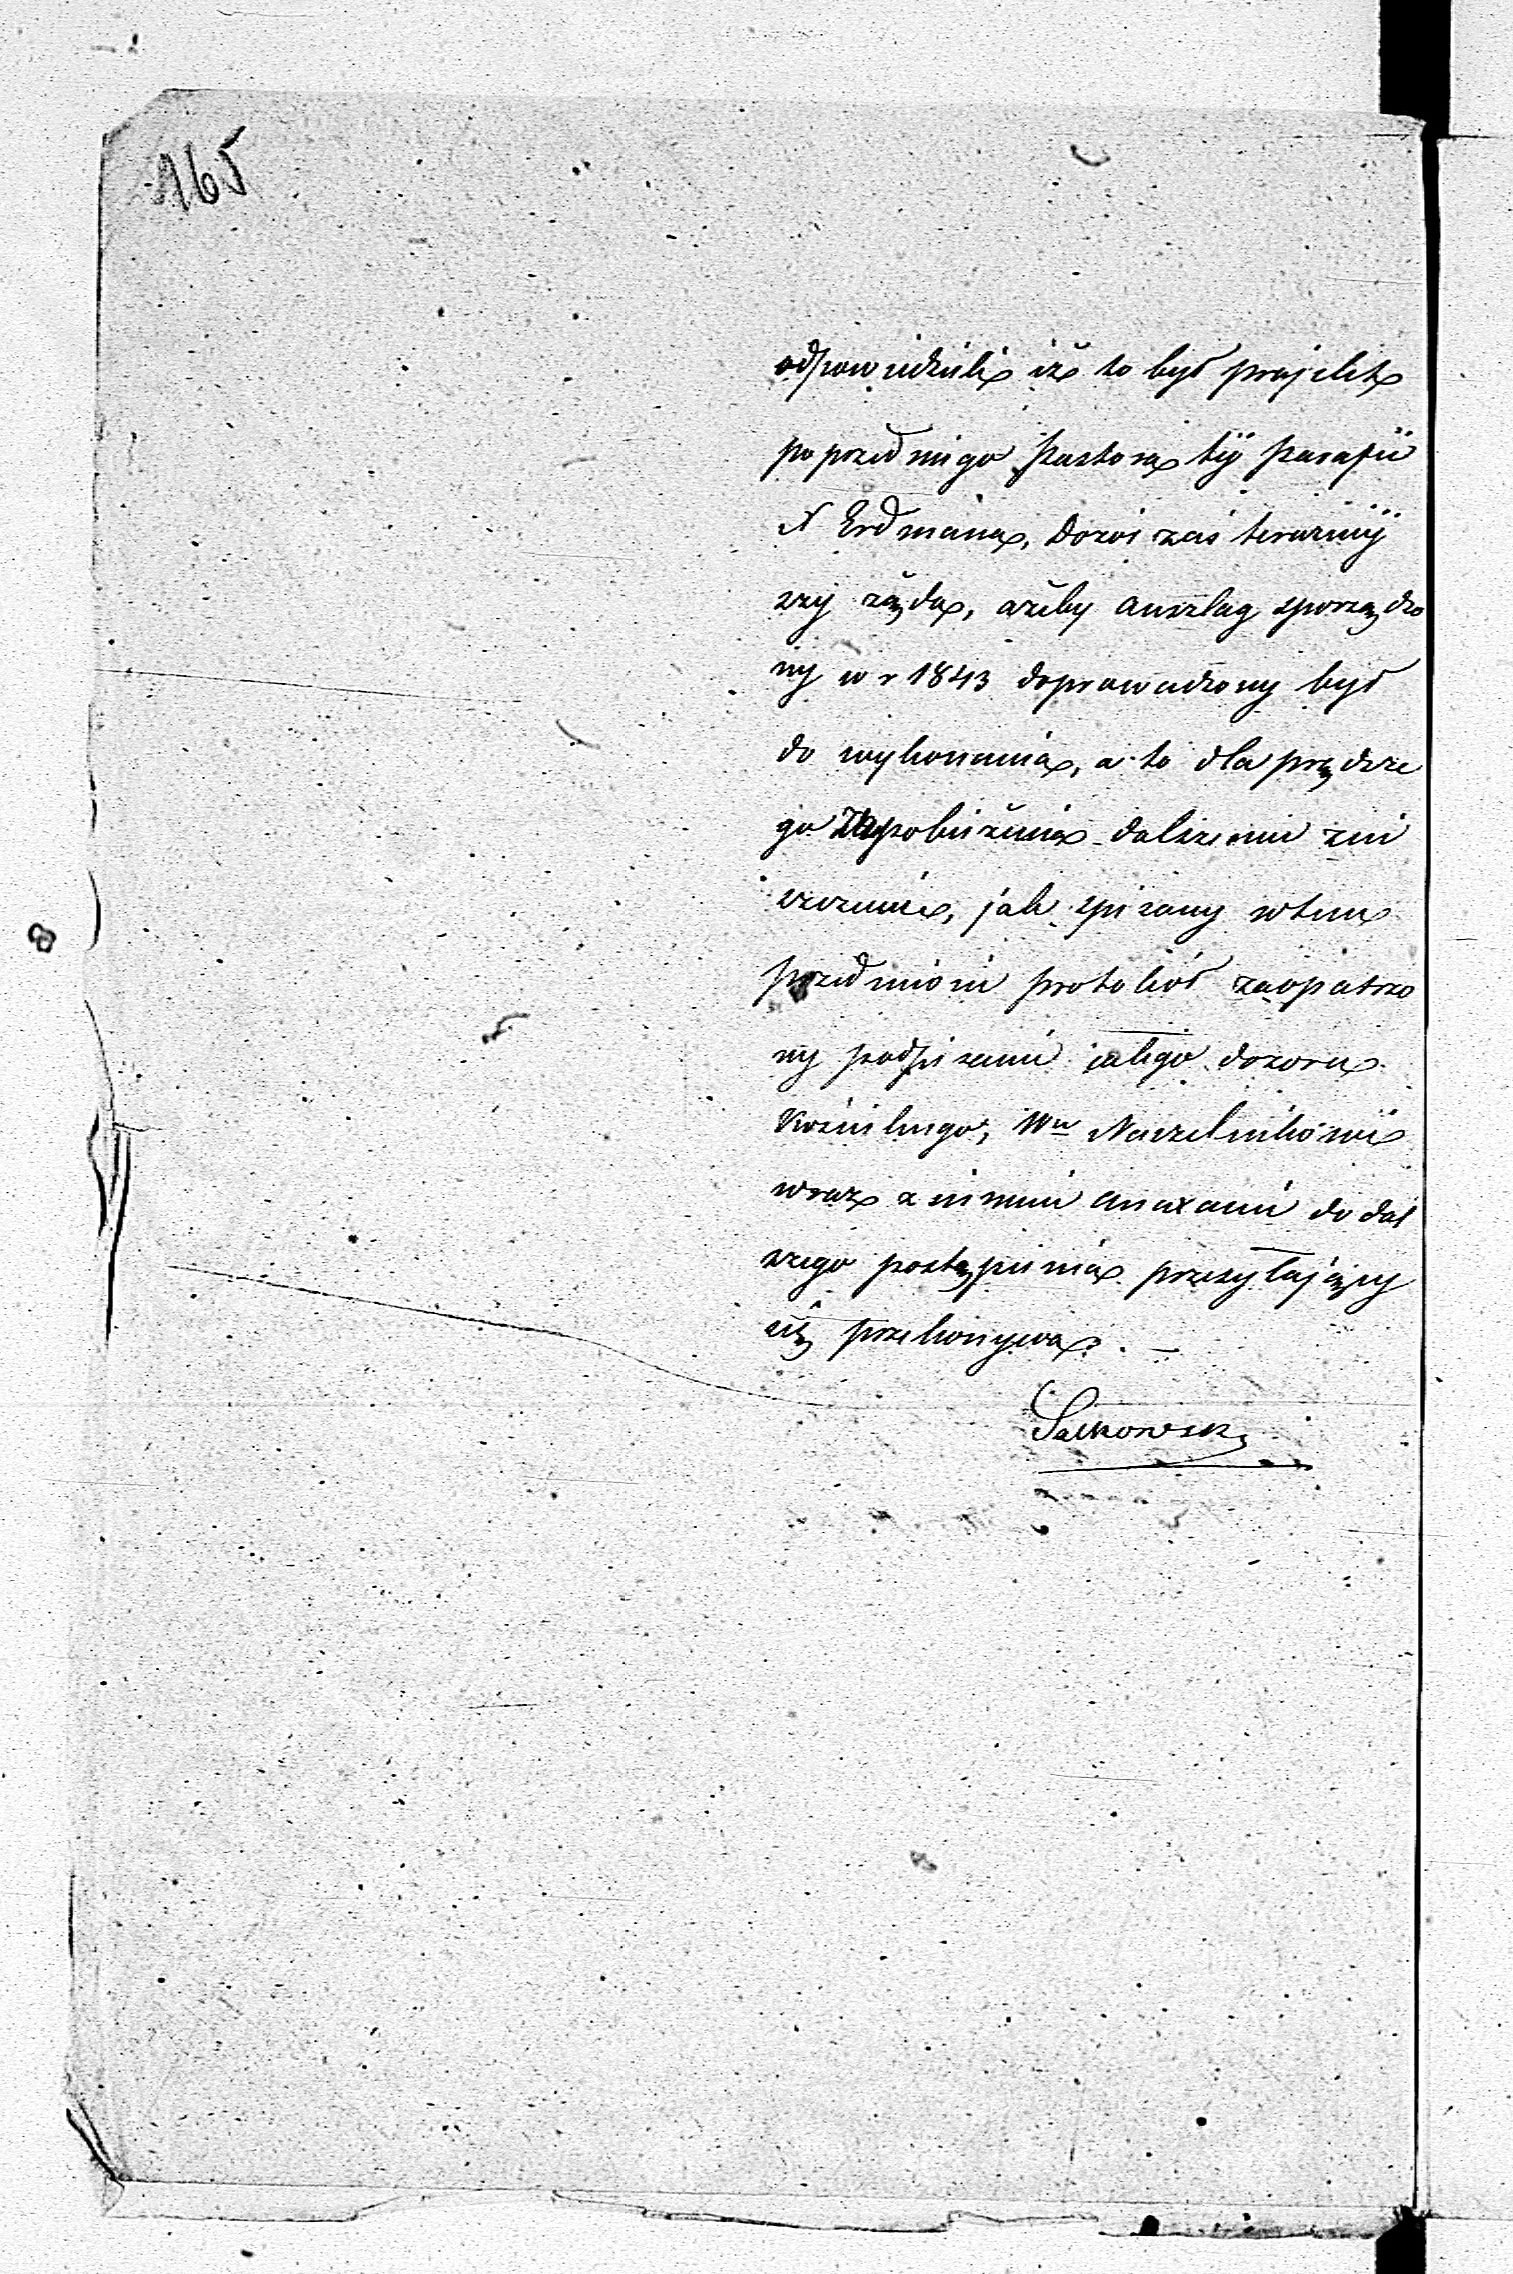 165
odpowiedzieli iż to był projekt
poprzedniego Pastora téj Parafii
N Erdmana, Dozór zaś teraźniéj
szy żąda, ażeby anszlag sporządzo
ny w r 1843 doprowadzony był
do wykonania, a to dla prędsze
go zapobieżenia dalszemu zni
szczeniu, jak spisany w tem
przedmiocie protokół zaopatrzo
ny podpisami całego dozoru
Kościelnego, Wu Naczelnikowi
wraz z innemi anexami do dal
szego postąpienia przesyłający
się przekonywa. —